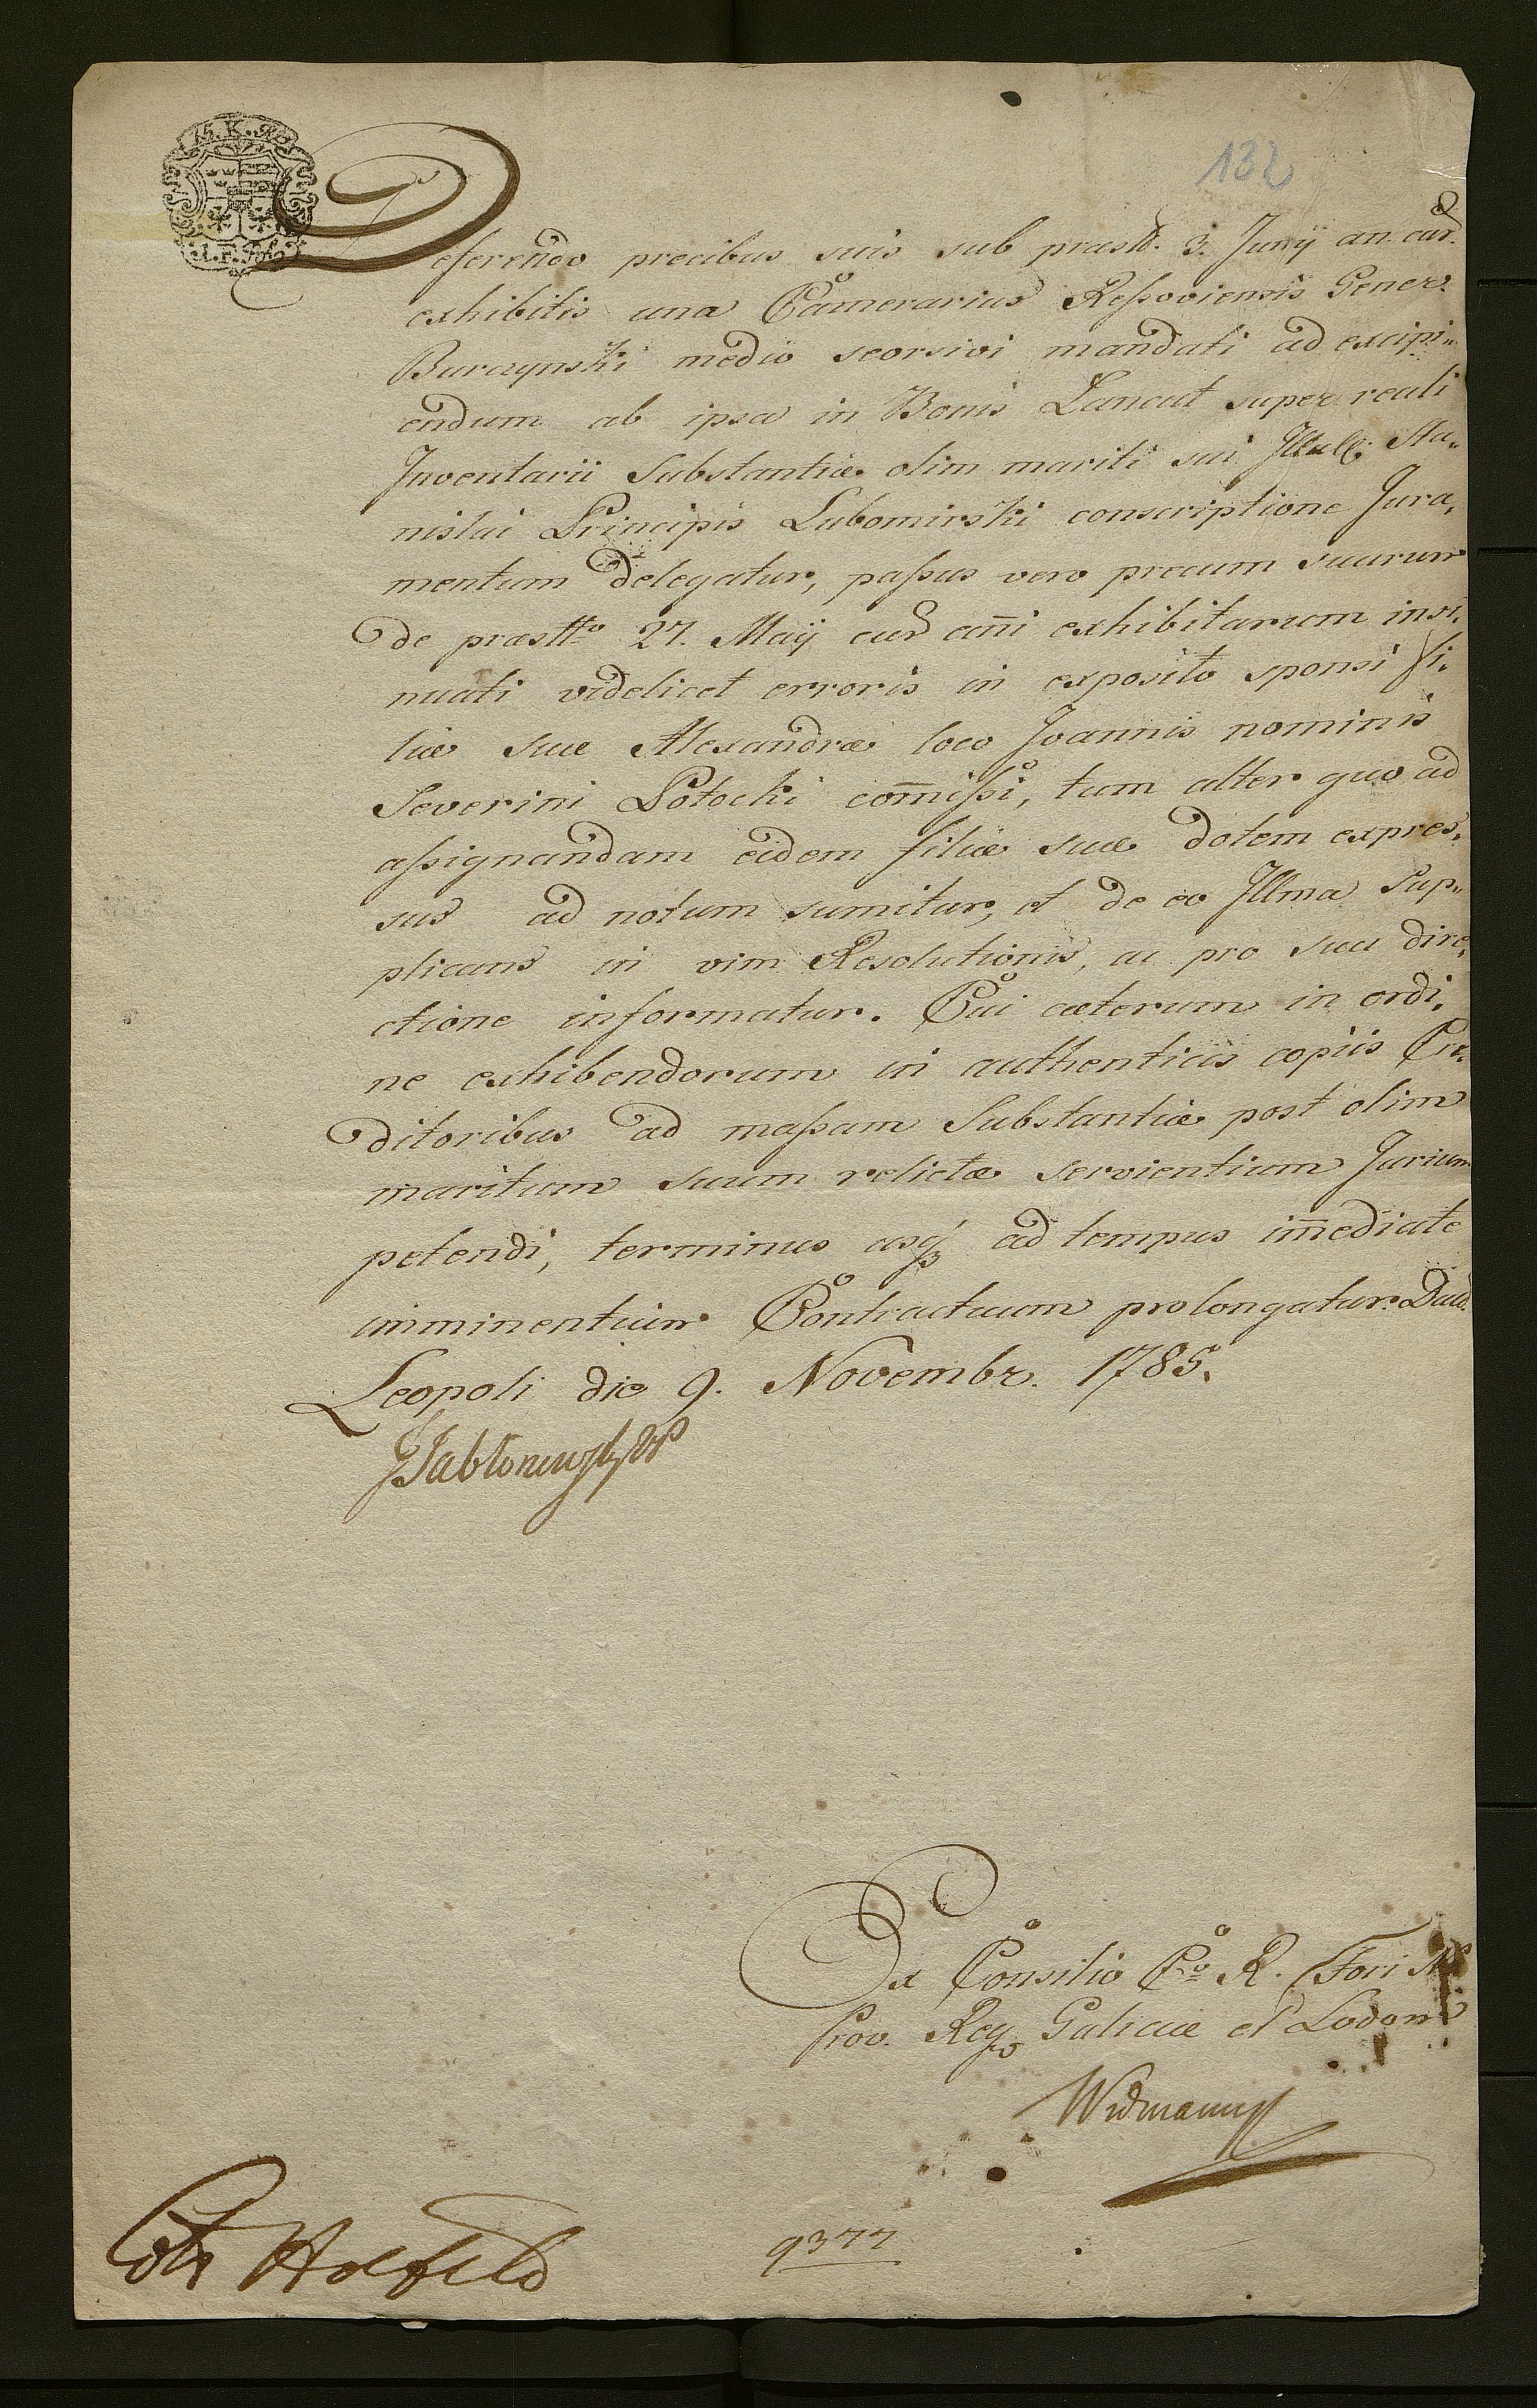 132
Deferendo precibus suis sub præstto. 3. Junÿ an. cur.
exhibitis una Camerarius Reſsoviensis Gener.
Burczynski medio seorsivi mandati ad excipi„
endum ab ipsa in Bonis Lancut super reali
Inventarii Substantiæ olim mariti sui Sta„
nislai Principis Lubomirski conscriptione Jura„
mentum delegatur, paſsus vero precum suarum
de præstto 27. Maÿ cur añi exhibitarum insi„
nuati videlicet erroris in exposito sponsi fi„
liæ suæ Alexandræ loco Joannis nominis
Severini Potocki com̄iſsi, tum alter quo ad
aſsignandam eidem filiæ suæ dotem expres„
sus ad notum sumitur, et de eo Illma Sup„
plicans in vim Resolutionis, ac pro sua dire„
ctione informatur. Cui cæterum in ordi„
ne exhibendorum in authenticis copiis Cre„
ditoribus ad maſsam Substantiæ post olim
maritum suum relictæ servientium Jurium
petendi, terminus usq₃ ad tempus im̄ediate
imminentium Contractuum prolongatur. Datt.
Leopoli die 9. Novembr. 1785.
Jabłonowski
Ex Consilio C. R. Fori
Prov. Reg. Galiciæ et Lodom
Widmann
9377